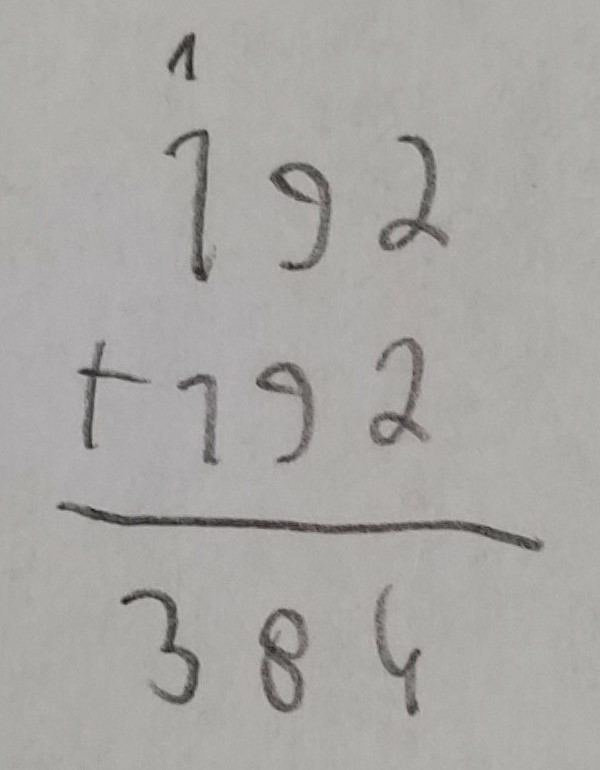 1
192
+192
384